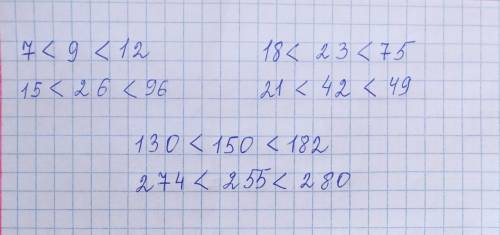 7 < 9 < 12 18 < 23 < 75
15 < 26 < 96 21 < 42 < 49
130 < 150 < 182
274 < 255 < 280